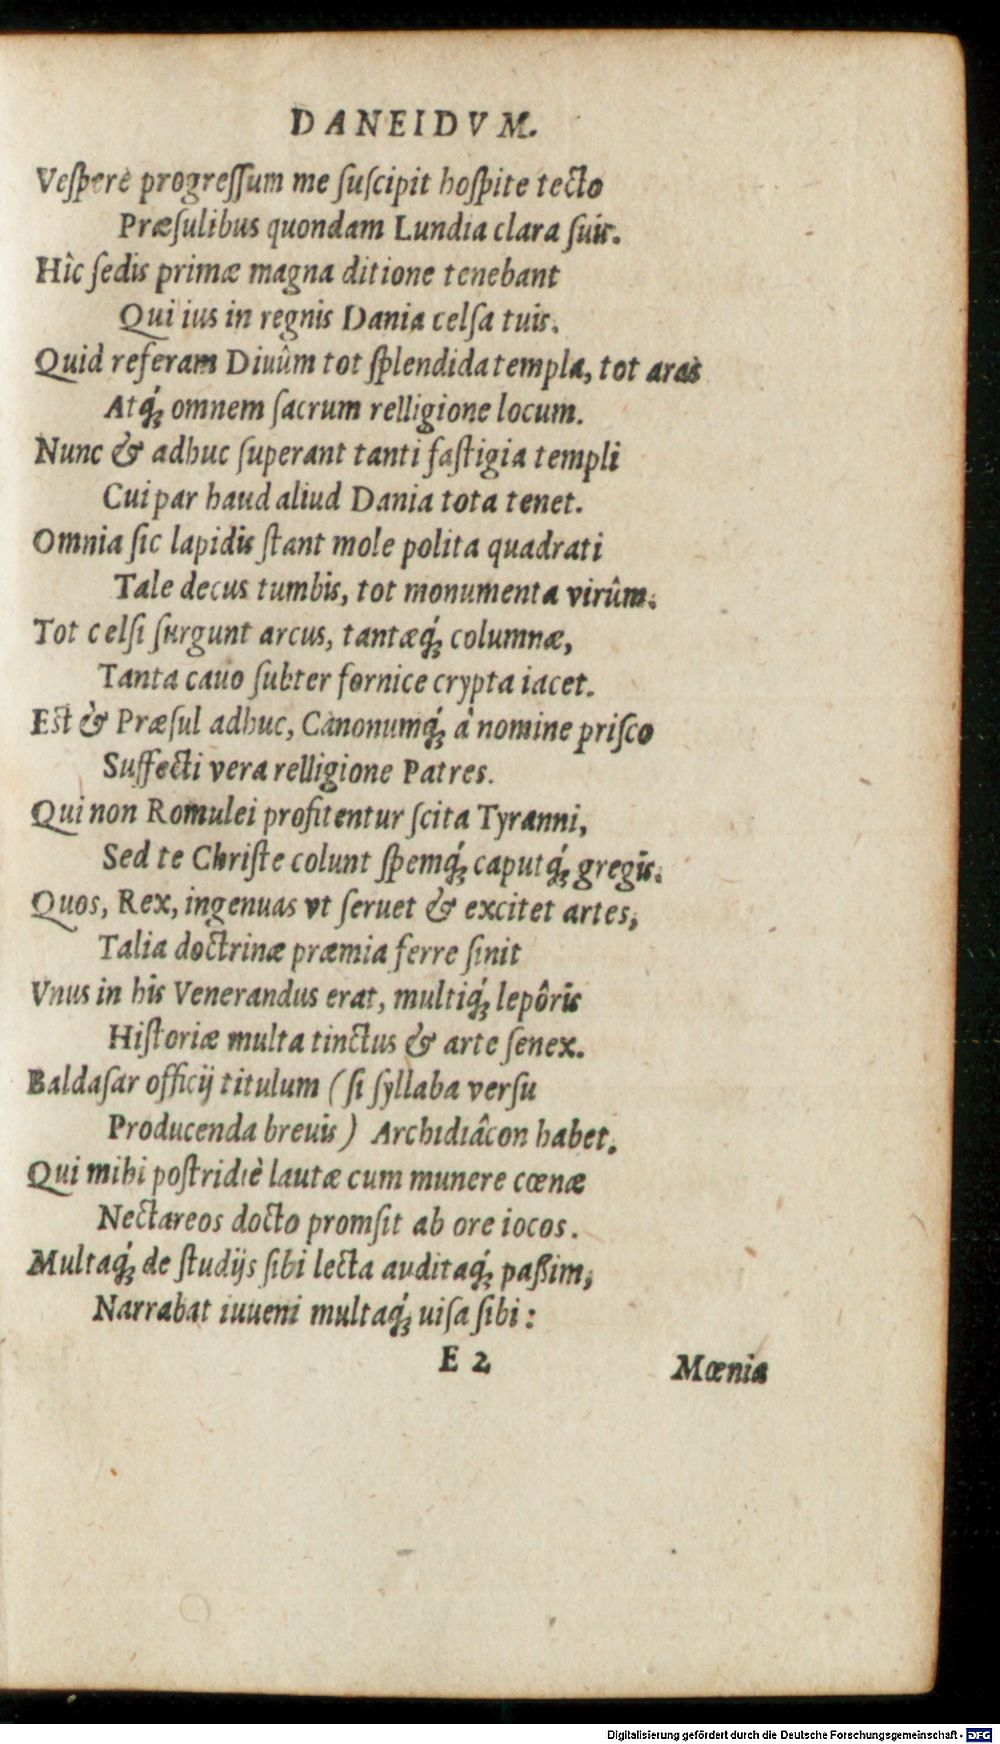 DANEIDVM.
Veſperè progreſſum me ſuſcipit hoſpite tecto
Præſulibus quondam Lundia clara ſuis.
Hîc ſedis primæ magna ditione tenebant
Qui ius in regnis Dania celſa tuis.
Quid referam Diuûm tot ſplendida templa, tot aras
Atq́; omnem ſacrum relligione locum.
Nunc & adhuc ſuperant tanti faſtigia templi
Cui par haud aliud Dania tota tenet.
Omnia ſic lapidis ſtant mole polita quadrati
Tale decus tumbis, tot monumenta virûm.
Tot celſi ſurgunt arcus, tantæq́; columnæ,
Tanta cauo ſubter fornice crypta iacet.
Est & Præſul adhuc, Canonumq́; à nomine priſco
Suffecti vera relligione Patres.
Qui non Romulei profitentur ſcita Tyranni,
Sed te Chriſte colunt ſpemq́; caputq́; gregis.
Quos, Rex, ingenuas vt ſeruet & excitet artes,
Talia doctrinæ præmia ferre ſinit
Vnus in his Venerandus erat, multiq́; lepôris
Hiſtoriæ multa tinctus & arte ſenex.
Baldaſar officij titulum (ſi ſyllaba verſu
Producenda breuis) Archidiâcon habet.
Qui mihi poſtridiè lautæ cum munere cœnæ
Nectareos docto promſit ab ore iocos.
Multaq́; de ſtudijs ſibi lecta auditaq́; paßim,
Narrabat iuueni multaq́; uiſa ſibi:
E 2
Mœnia
Digitalisierung gefördert durch die Deutsche Forschungsgemeinschaft - DFG